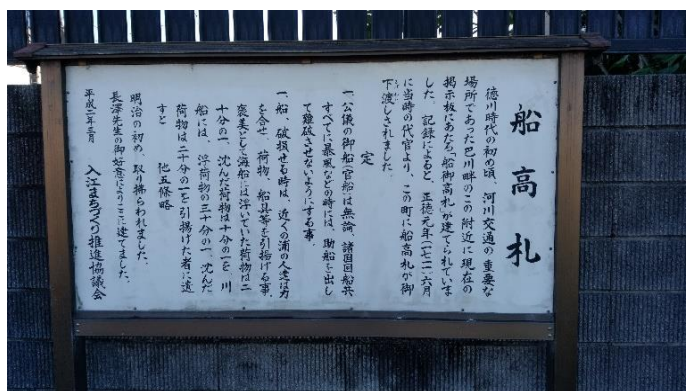 船高札
徳川時代の初め頃、河川交通の重要な
場所であった巴川畔のこの附近に現在の
掲示板にあたる「船御高札」が建てられていま
した。記録によると、正徳元年(一七一一)六月
に当時の代官より、この町に船高札が御
下渡しされました。
定
一、公儀の御船(官船)は無論、諸国回船共
すべてに暴風などの時には、助船を出し
て難破させないようにする事。
一、船、破損せる時は、近くの浦の人達は力
を合せ、荷物、船具等を引揚げる事、
褒美として海船には浮いていた荷物は二
十分の一、沈んだ荷物は十分の一を、川
船には、浮荷物の三十分の一、沈んだ
荷物は二十分の一を引揚げた者に遣
すと 他五條略
明治の初め、取り払われました。
長澤先生の御好意によりここに建てました。
平成二年三月 入江まちづくり推進協議会